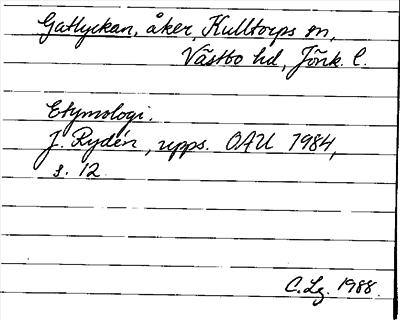 Gatlyckan, åker, Kulltorps sn,
Västbo hd, Jönk. l.
Etymologi.
J. Rydén, upps. OAU 1984,
s. 12
C. Lg. 1988.